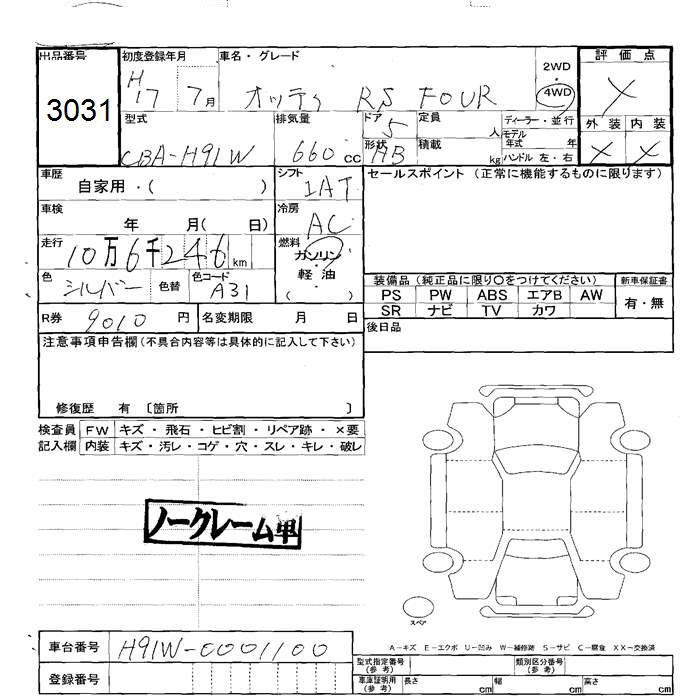 出品番号 初度登録年月 車名・グレード 評価点
3031 H17 7月 オッティ RS FOUR 2WD 4WD X
型式 排気量 ドア 定員 人 ディーラー・並行 外装 内装
CBA-H91W 660cc 5 形状 HB 積載 kg モデル年式 年 ハンドル 左・右 X X
車歴 自家用・( ) シフト IAT セールスポイント(正常に機能するものに限ります)
車検 年 月( 日) 冷房 AC
走行 10万6千246km 燃料 ガソリン・軽油 ( )
色 シルバー 色替 色コード A31
装備品(純正品に限り○をつけてください) 新車保証書
PS PW ABS エアB AW 有・無
SR ナビ TV カワ
R券 9010円 名変期限 月 日 後日品
注意事項申告欄(不具合内容等は具体的に記入して下さい)
修復歴 有 〔箇所 〕
検査員 FW キズ・飛石・ヒビ割・リペア跡・×要
記入欄 内装 キズ・汚レ・コゲ・穴・スレ・キレ・破レ
ノークレーム車
スペア
A-キズ E-エクボ U-凹み W-補修跡 S-サビ C-腐食 XX-交換済
車台番号 H91W-0001100
型式指定番号(参考) 類別区分番号(参考)
登録番号
車庫証明用(参考) 長さ cm 幅 cm 高さ cm